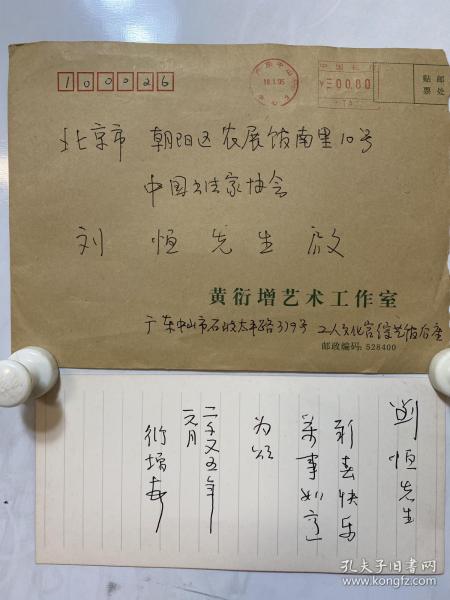 100026
广东中山
18.1.05
中国邮政
00.80
贴邮
票处
北京市 朝阳区农展馆南里10号
中国书法家协会
刘恒先生 启
黄衍增艺术工作室
广东中山市石岐太平路319号 工人文化宫综艺馆后座
邮政编码:528400
刘恒先生
新春快乐
万事如意
为颂
二千又五年
元月
衍增
孔夫子旧书网
www.kongfz.com